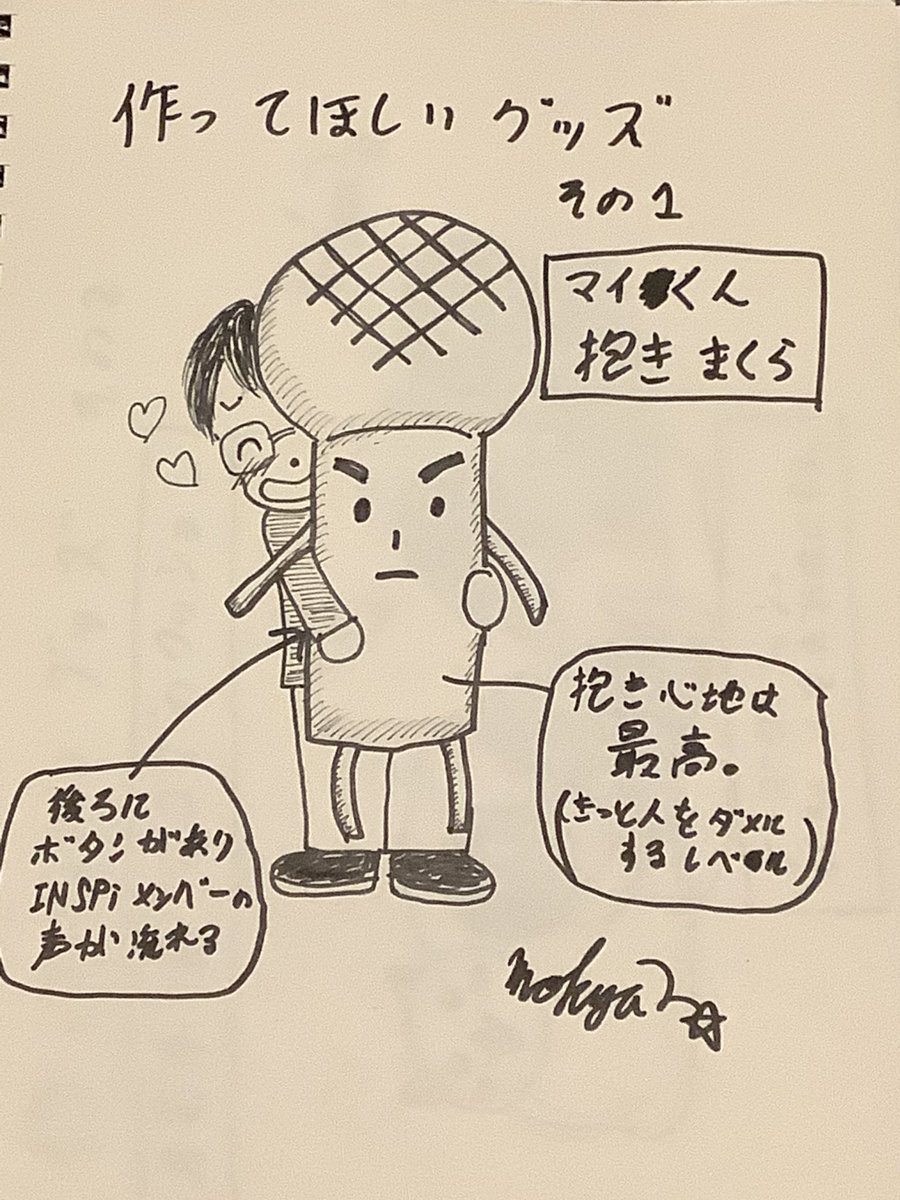 作ってほしいグッズ
その1
マイくん
抱きまくら
抱き心地は
最高。
(きっと人をダメに
するレベル)
後ろに
ボタンが有り
INSPiメンバーの
声が流れる